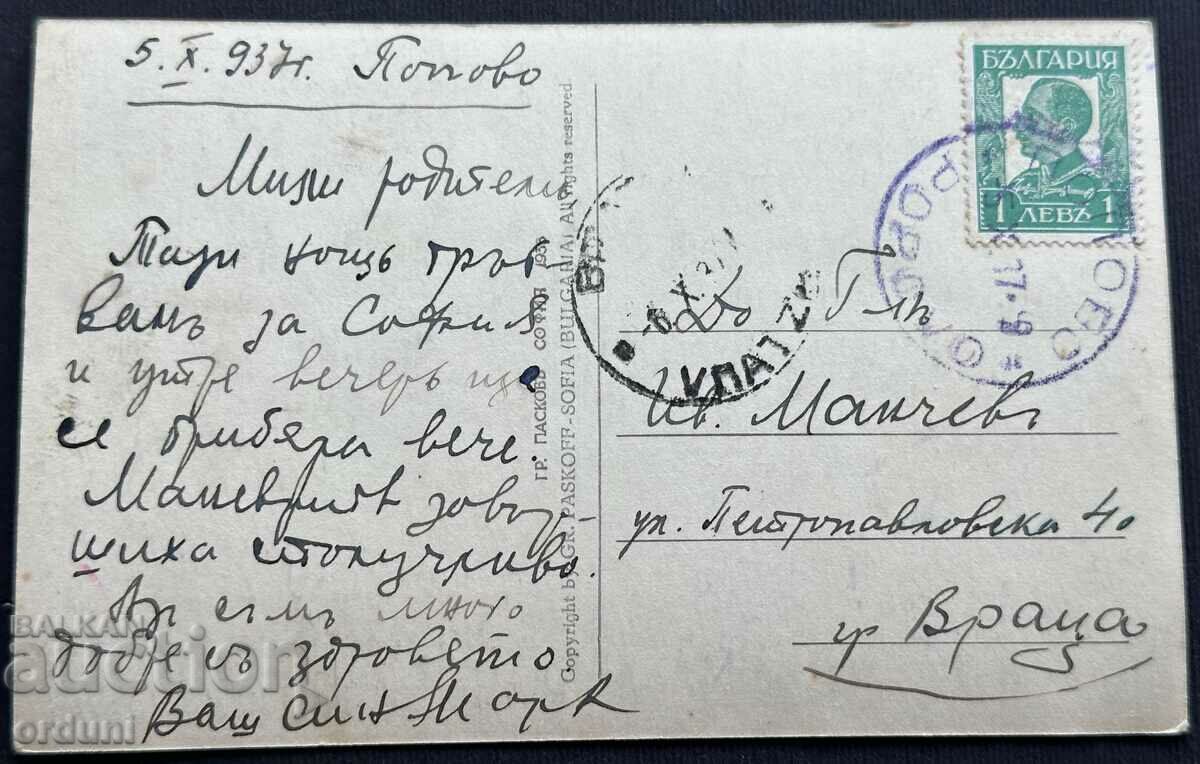 5.X.937г. Попово
Мили родители
Тази нощъ тръг-
вамъ за София
и утре вечерь ще
се прибера вече.
Маневритѣ завър-
шиха сполучливо.
Аз съмъ много
добре съ здравето
Ваш синъ
ГР. ПАСКОВЪ СОФИЯ 193
Copyright by GR. PASKOFF-SOFIA (BULGARIA) All rights reserved
БЪЛГАРИЯ
1 ЛЕВЪ 1
17-9
До Г-нъ
Ив. Манчевъ
ул. Петропавловска 40
гр Враца
BALKAN
auction
orduni